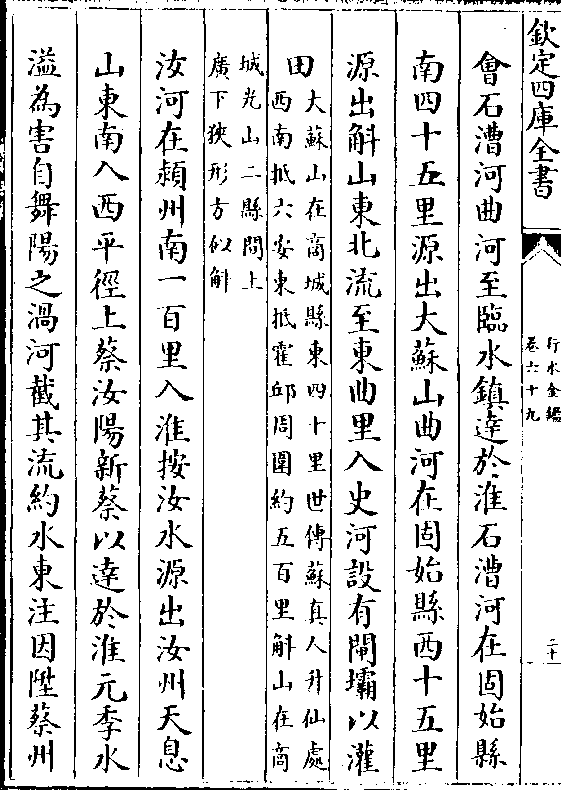 欽定四庫全書
行水金鑑
卷六十九
二十
會石漕河曲河至臨水鎮達於淮石漕河在固始縣
南四十五里源出大蘇山曲河在固始縣西十五里
源出斛山東北流至東曲里入史河設有閘壩以灌
田
大蘇山在商城縣東四十里世傳蘇真人升仙處
西南抵六安東抵霍邱周圍約五百里斛山在商
城光山二縣間上
廣下狹形方似斛
汝河在潁州南一百里入淮按汝水源出汝州天息
山東南入西平徑上蔡汝陽新蔡以達於淮元季水
溢為害自舞陽之渦河截其流約水東注因陞蔡州